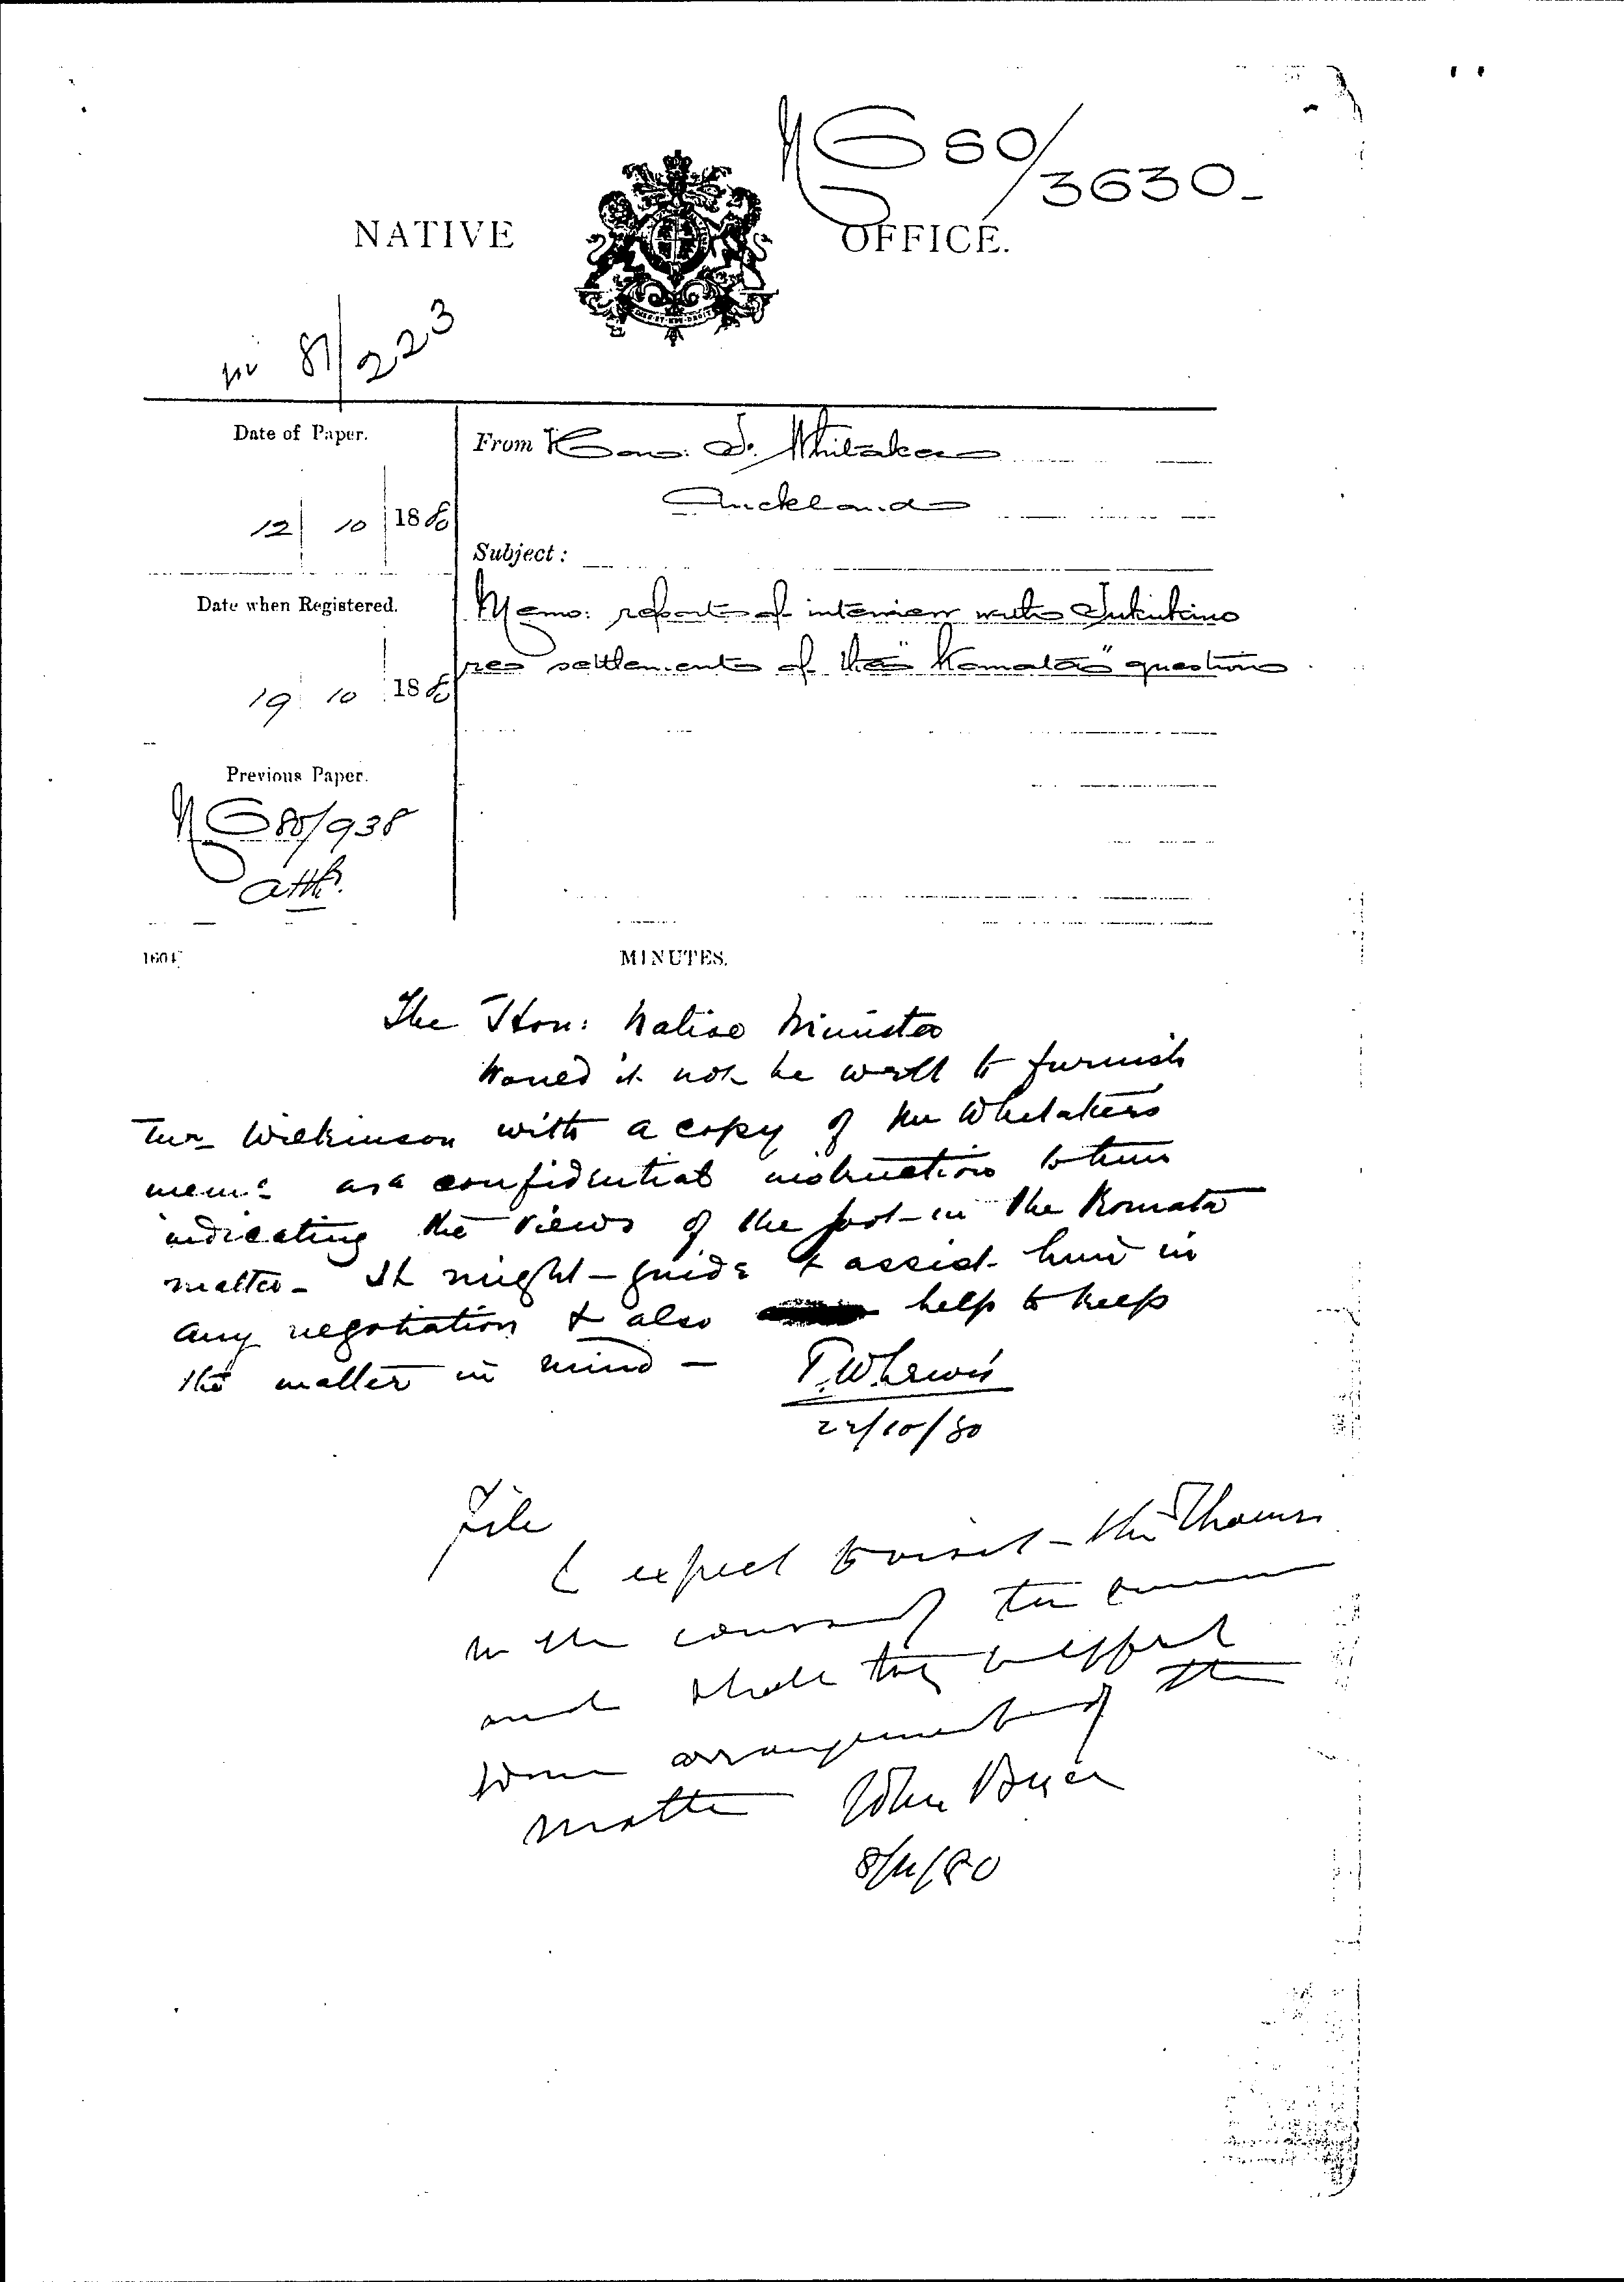 NG 80/3630
NATIVE OFFICE.
81/223
Date of Paper.
12 10 1880
From Hon: F. Whitaker
Auckland
Subject:
Date when Registered.
19 10 1880
Memo: report of interview with Tukukino
re settlement of the "Komata" question
Previous Paper.
NG 80/938
atthd.
MINUTES.
The Hon: Native Minister
Would it not be well to furnish
Mr Wilkinson with a copy of Mr Whitakers
memo as a confidential instruction to him
indicating the views of the Govt in the Komata
matter - It might guide & assist him in
any negotiation & also help to keep
the matter in mind -
T.W. Lewis
22/10/80
File
I expect to visit the Thames
in the course of the summer
and shall try to effect
some arrangement of the
matter
John Bryce
8/11/80